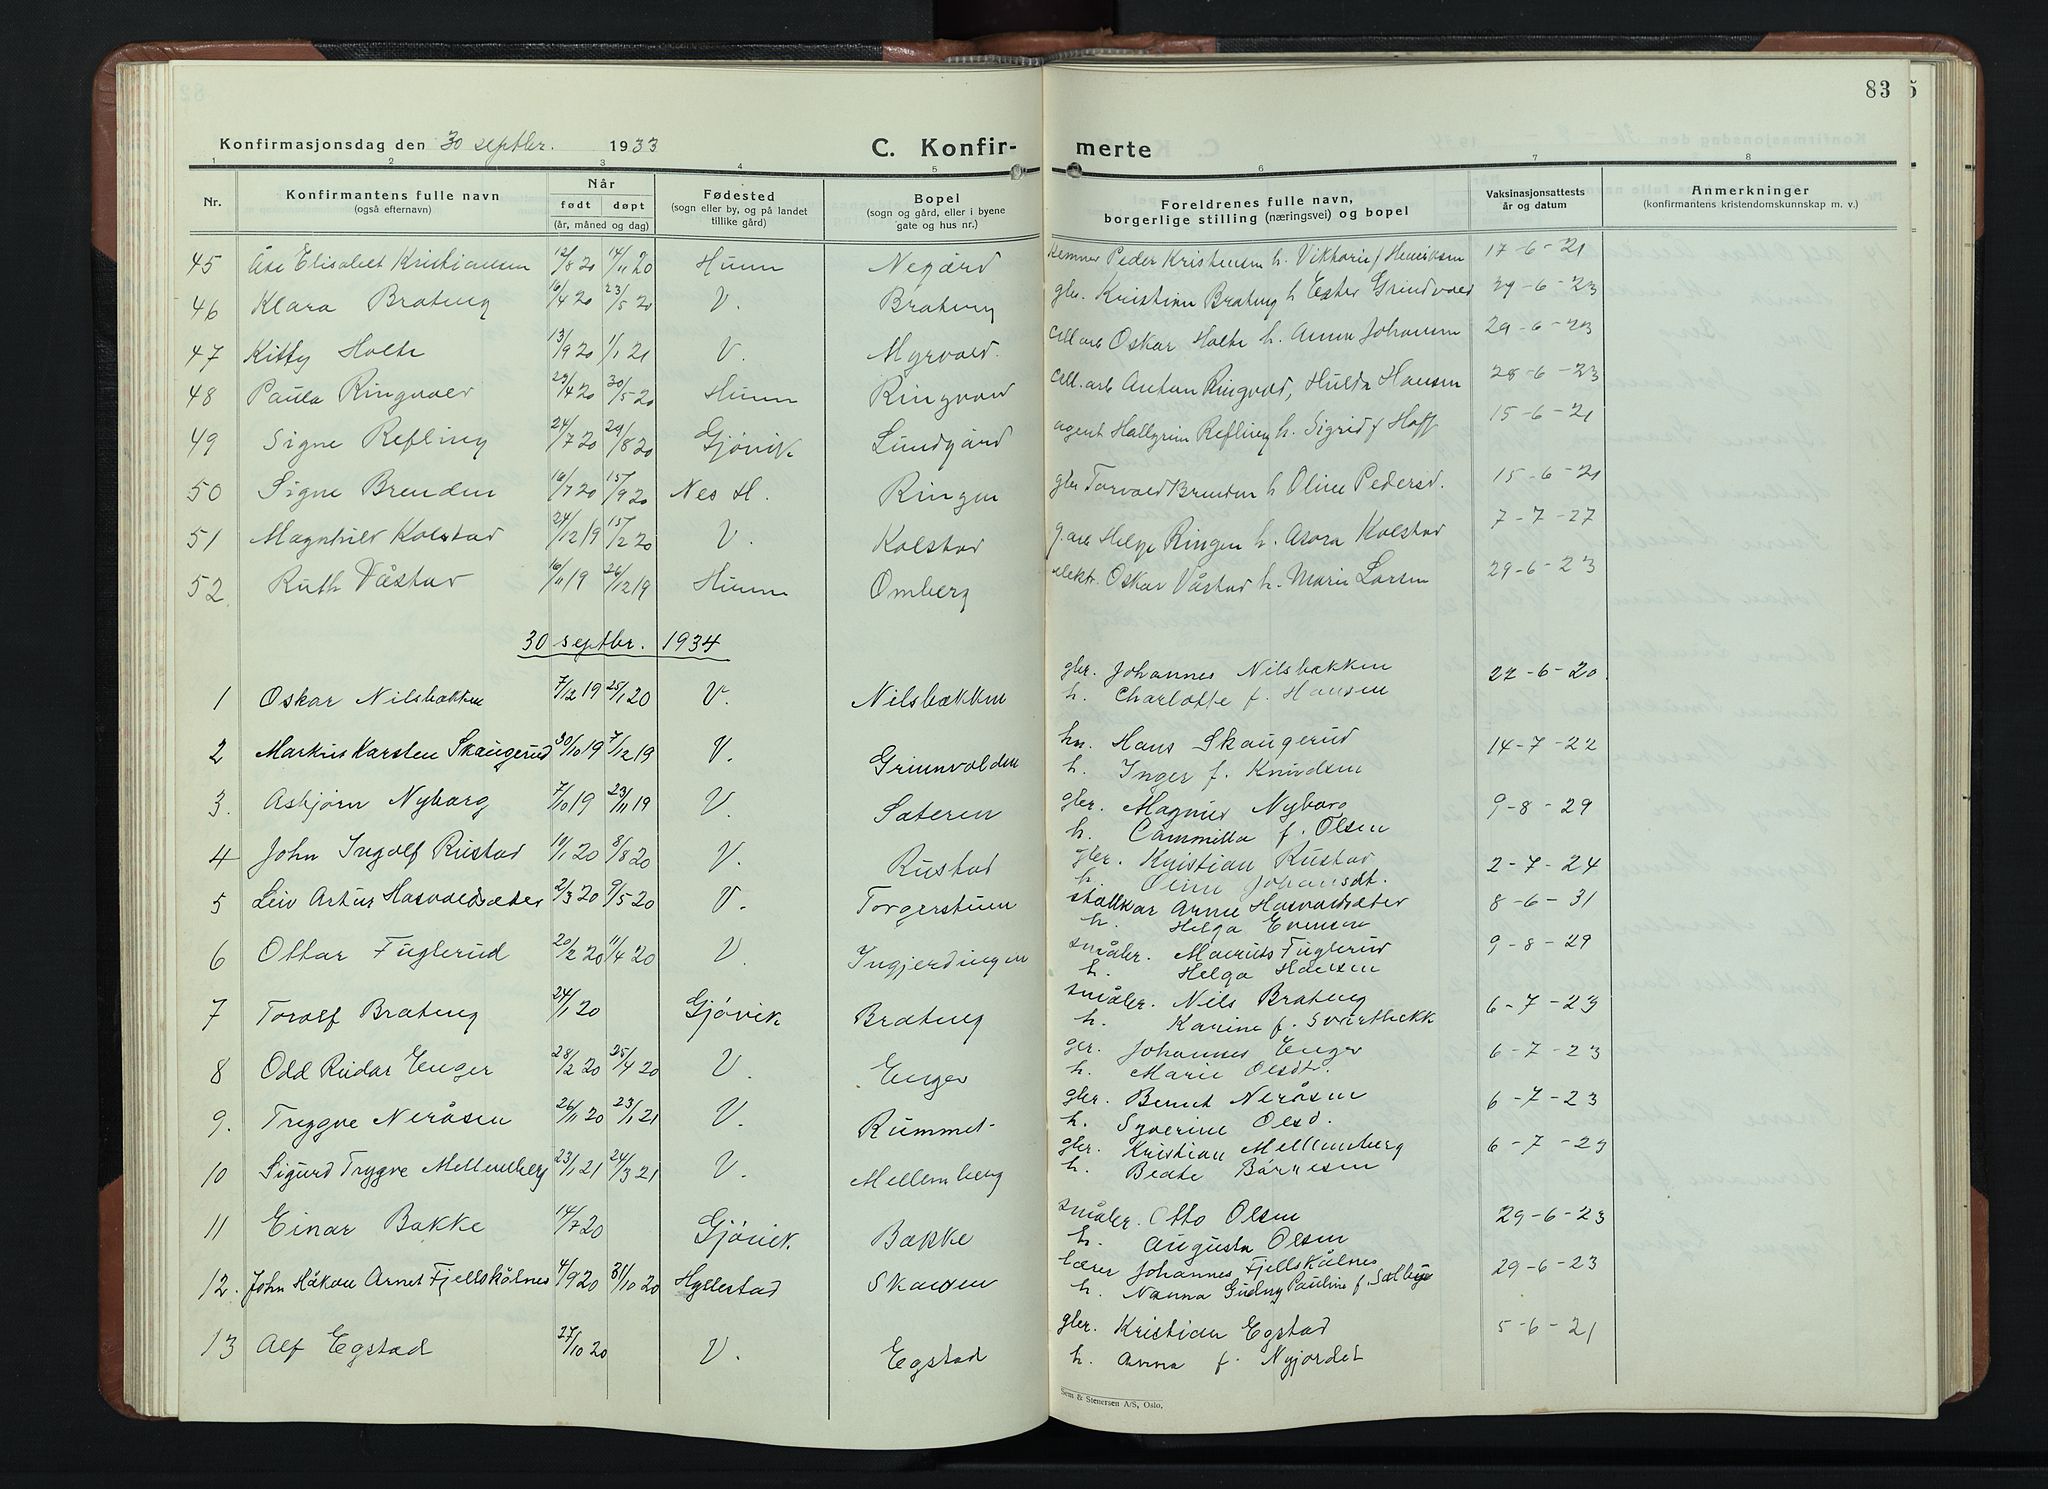 83
Konfirmasjonsdag den 30 septbr. 1933 C. Konfir- merte
1 2 3 4 5 6 7 8
Nr. Konfirmantens fulle navn (også efternavn) Når født døpt (år, måned og dag) Fødested (sogn eller by, og på landet tillike gård) Bopel (sogn og gård, eller i byene gate og hus nr.) Foreldrenes fulle navn, borgerlige stilling (næringsvei) og bopel Vaksinasjonsattests år og datum Anmerkninger (konfirmantens kristendomskunnskap m. v.)
45 Åse Elisabet Kristiansen 12/8 20 14/11 20 Hunn Negård Kemner Peder Kristensen h. Viktoria f Henriksen 17-6-21
46 Klara Brateng 16/4 20 23/5 20 V. Brateng gbr. Kristian Brateng h Ester Grindvold 29-6-23
47 Kitty Holte 13/9 20 1/1 21 V. Myrvold. cell arb Oskar Holte h. Anna Johansen 29-6-23
48 Paula Ringvold 23/4 20 30/5 20 Hunn Ringvold cell. arb Anton Ringvold, Hulda Hansen 28-6-23
49 Signe Refling 24/7 20 29/8 20 Gjøvik Lundgård agent Hallgrim Refling h. Sigrid f Hoff 15-6-21
50 Signe Brenden 16/7 20 15/9 20 Nes H. Ringen gbr Torvald Brenden h Oline Pedersd. 15-6-21
51 Magnhild Kolstad 24/12 19 15/2 20 V. Kolstad g. arb Helge Ringen h. Asora Kolstad 7-7-27
52. Ruth Våstad 16/11 19 26/12 19 Hunn Omberg elektr. Oskar Våstad h. Marie Larsen 29-6-23
30 septbr. 1934
1 Oskar Nilsbakken 7/12 19 25/1 20 V. Nilsbakken gbr. Johannes Nilsbakken 22-6-20
h. Charlotte f. Hansen
2 Markus Karsten Skaugerud 30/10 19 7/12 19 V. Grimvolden hn. Hans Skaugerud 14-7-22
h. Inger f. Knudsen
3. Asbjørn Nyborg 7/10 19 23/11 19 V. Sateren gbr. Magnus Nyborg 9-8-29
h. Cammilla f. Olsen
4 John Ingolf Rustad 19/1 20 8/8 20 V. Rustad gbr. Kristian Rustad 2-7-24
h. Oline Johansdt.
5 Leiv Artur Hasvoldsæter 2/3 20 9/5 20 V. Torgerstuen stallkar Arne Hasvoldsæter 8-6-31
h. Helga Evensen
6 Ottar Fuglerud 20/2 20 11/4 20 V. Ingjerdingen småbr. Maurits Fuglerud 9-8-29
h. Helga Hansen
7 Toralf Brateng 24/1 20 Gjøvik Brateng småbr. Nils Brateng 6-7-23
h. Karine f. Svartbekk
8 Odd Reidar Enger 28/2 20 25/4 20 V. Enger gbr. Johannes Enger 6-7-23
h. Marie Olsdtr.
9. Trygve Neråsen 26/11 20 23/1 21 V. Rummet gbr. Bernt Neråsen 6-7-23
h. Syverine Olsd.
10 Sigurd Trygve Mellemberg 23/1 21 24/3 21 V. Mellemberg gbr. Kristian Mellemberg 6-7-23
h. Beate Børresen
11 Einar Bakke 14/7 20 Gjøvik Bakke småbr. Otto Olsen 29-6-23
h. Augusta Olsen
12. John Håkon Arnet Fjellskålnes 4/9 20 31/10 20 Hyllestad Skauen lærer Johannes Fjellskålnes 29-6-23
h. Nanna Gudny Pauline f.
13 Alf Egstad 27/10 20 V. Egstad gbr. Kristian Egstad 5-6-21
h. Anna f. Nyjordet
Sem & Stenersen A/S, Oslo.